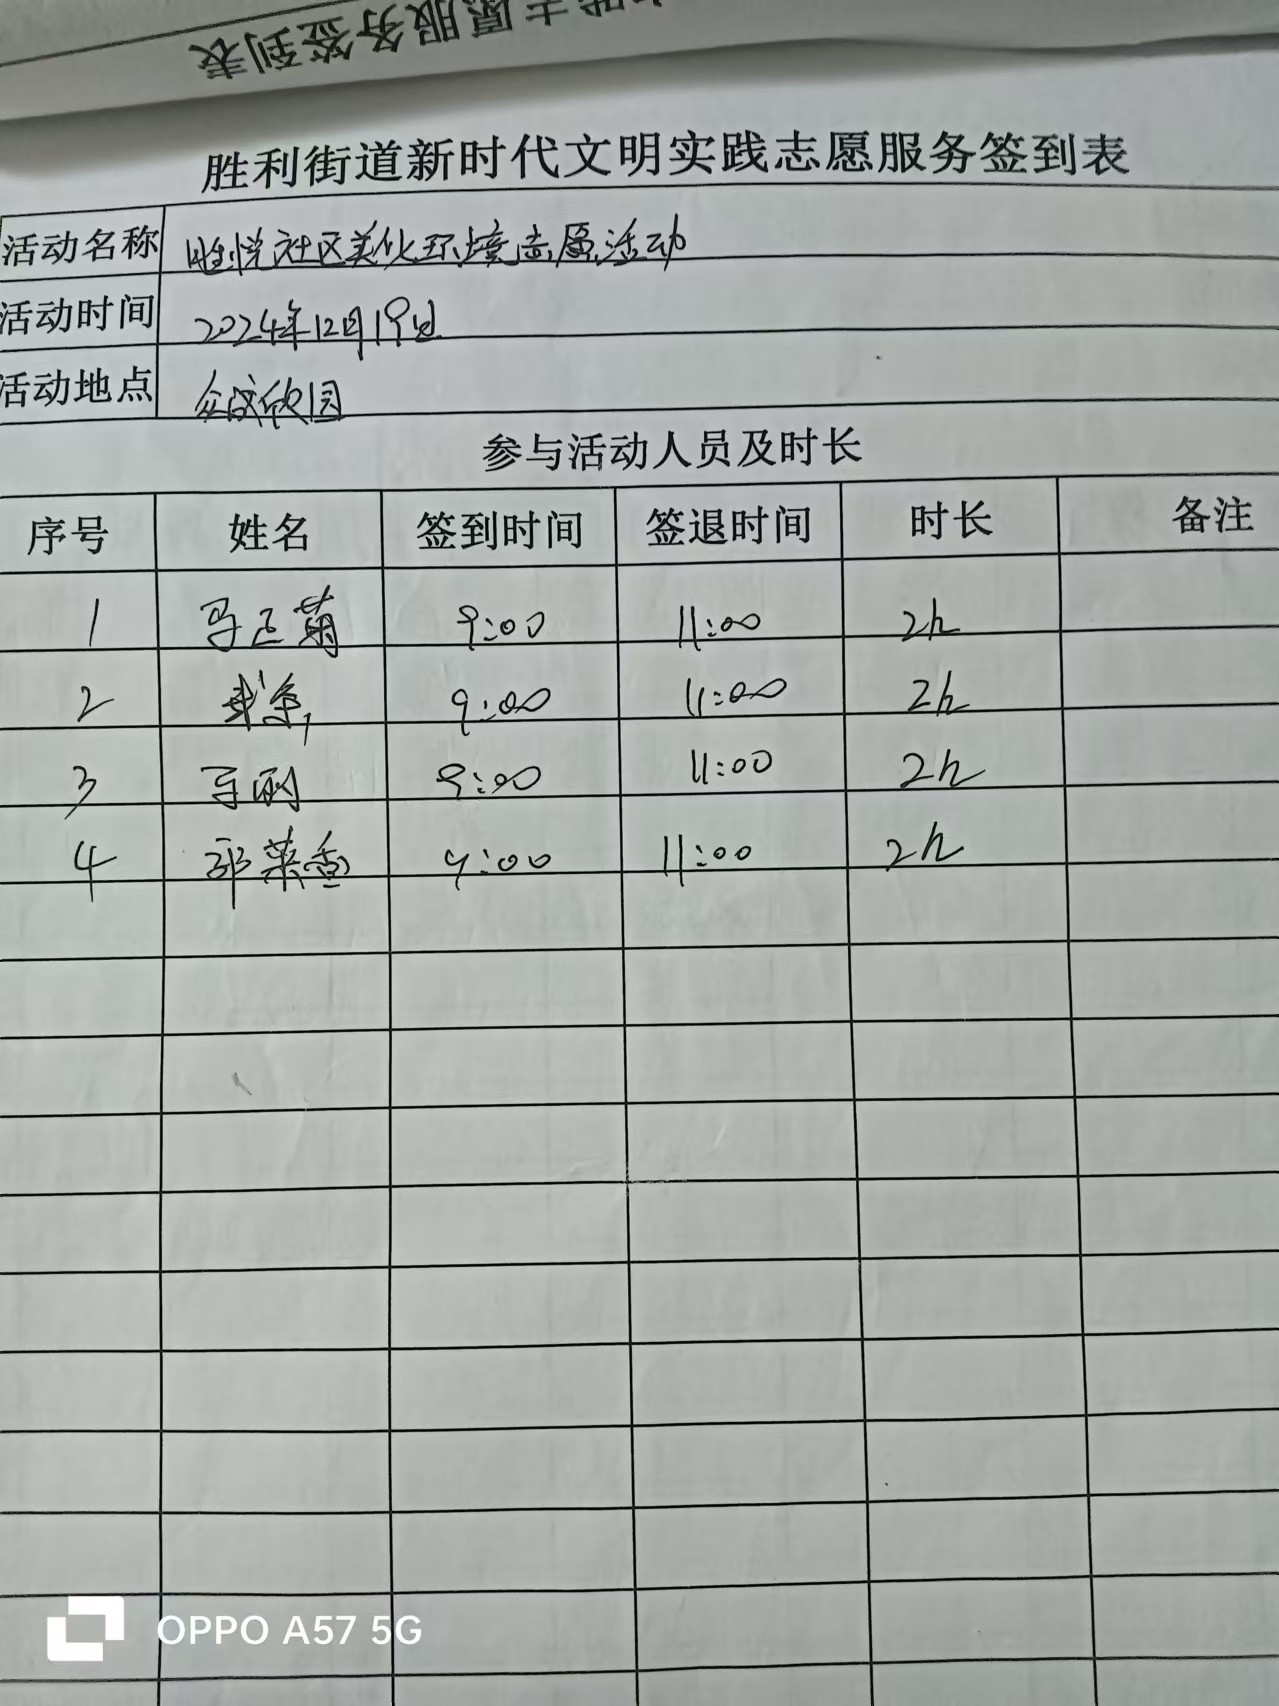 志愿服务签到表
胜利街道新时代文明实践志愿服务签到表
活动名称 胜悦社区美化环境志愿活动
活动时间 2024年12月19日
活动地点 众成欣园
参与活动人员及时长
序号 姓名 签到时间 签退时间 时长 备注
1 马正菊 9:00 11:00 2h
2 9:00 11:00 2h
3 马丽 9:00 11:00 2h
4 邵荣香 9:00 11:00 2h
OPPO A57 5G